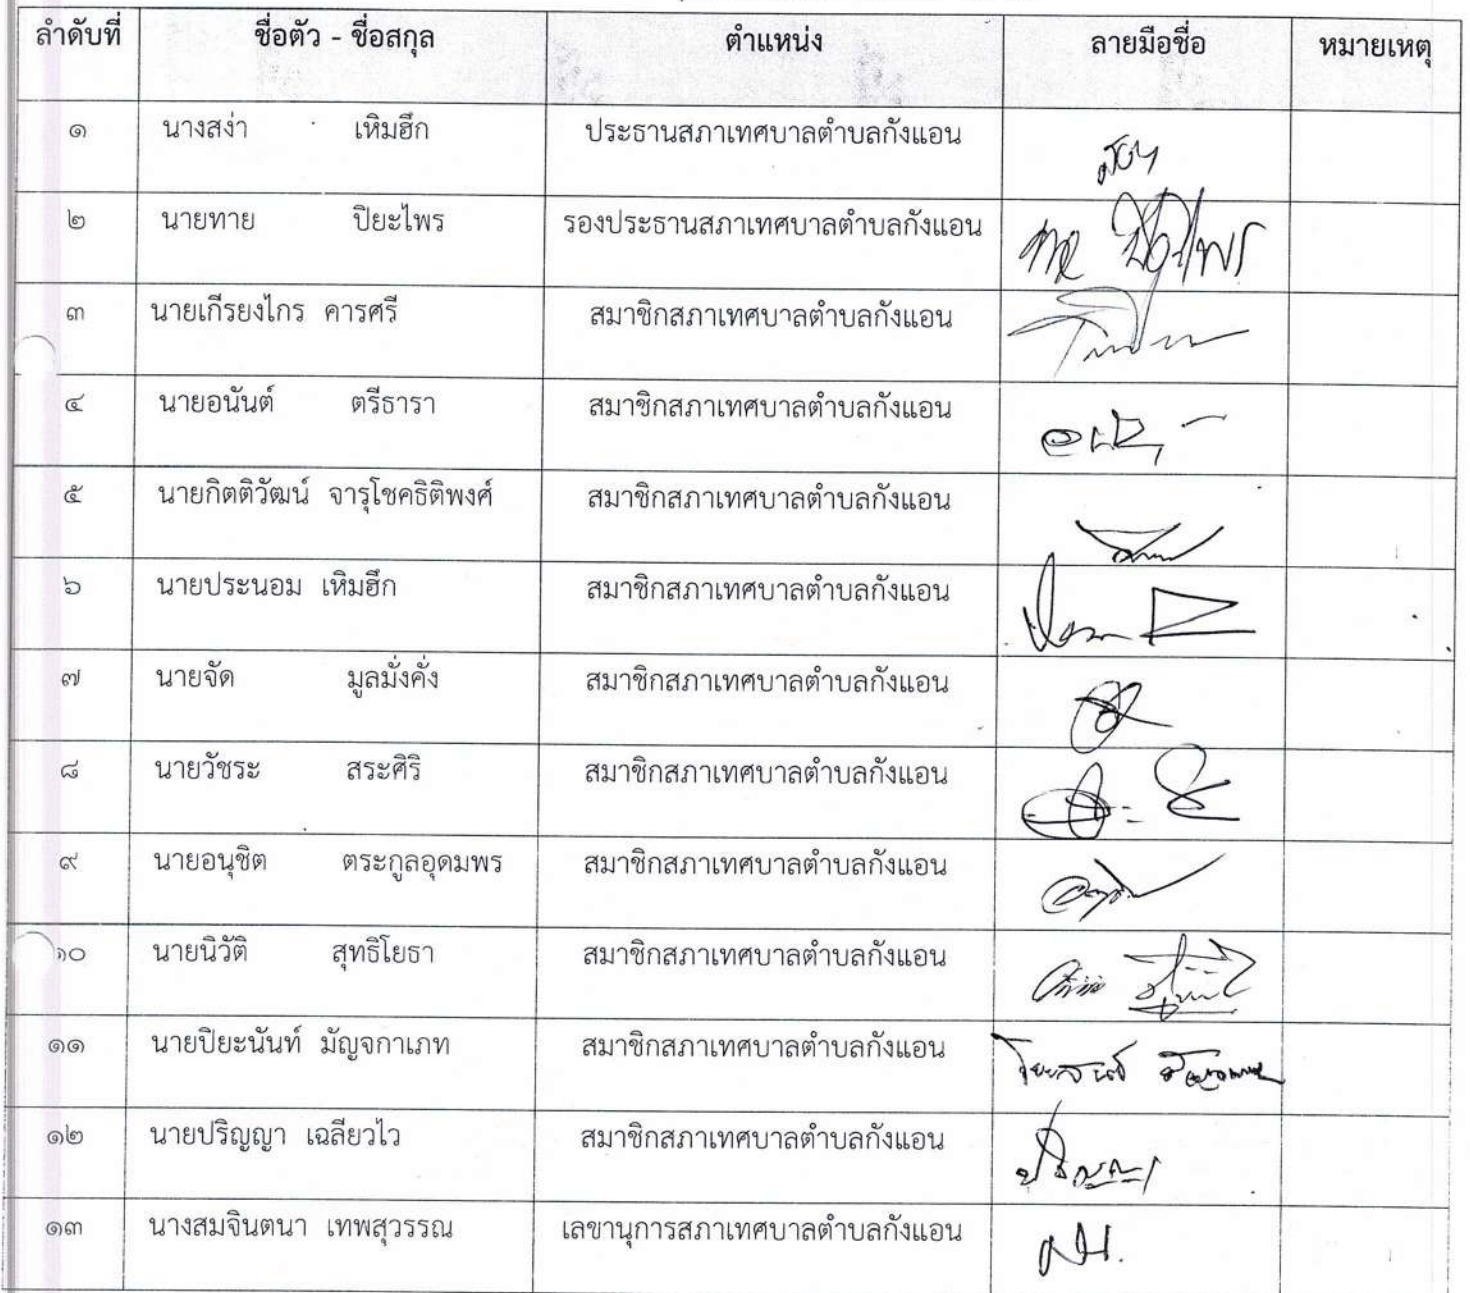 ลำดับที่ ชื่อตัว - ชื่อสกุล ตำแหน่ง ลายมือชื่อ หมายเหตุ
๑ นางสง่า เหิมฮึก ประธานสภาเทศบาลตำบลกังแอน
๒ นายทาย ปิยะไพร รองประธานสภาเทศบาลตำบลกังแอน
๓ นายเกีรยงไกร คารศรี สมาชิกสภาเทศบาลตำบลกังแอน
๔ นายอนันต์ ตรีธารา สมาชิกสภาเทศบาลตำบลกังแอน
๕ นายกิตติวัฒน์ จารุโชคธิติพงศ์ สมาชิกสภาเทศบาลตำบลกังแอน
๖ นายประนอม เหิมฮึก สมาชิกสภาเทศบาลตำบลกังแอน
๗ นายจัด มูลมั่งคั่ง สมาชิกสภาเทศบาลตำบลกังแอน
๘ นายวัชระ สระศิริ สมาชิกสภาเทศบาลตำบลกังแอน
๙ นายอนุชิต ตระกูลอุดมพร สมาชิกสภาเทศบาลตำบลกังแอน
๑๐ นายนิวัติ สุทธิโยธา สมาชิกสภาเทศบาลตำบลกังแอน
๑๑ นายปิยะนันท์ มัญจกาเภท สมาชิกสภาเทศบาลตำบลกังแอน
๑๒ นายปริญญา เฉลียวไว สมาชิกสภาเทศบาลตำบลกังแอน ปริญญา
๑๓ นางสมจินตนา เทพสุวรรณ เลขานุการสภาเทศบาลตำบลกังแอน